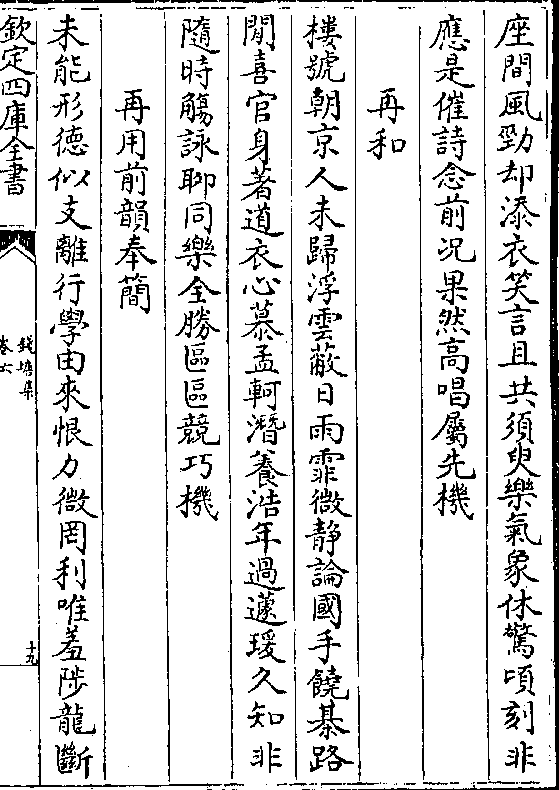 座間風勁却添衣笑言且共須臾樂氣象休驚頃刻非
應是催詩念前况果然高唱屬先機
再和
樓號朝京人未歸浮雲蔽日雨霏微静論國手饒棊路
閒喜官身著道衣心慕孟軻潛養浩年過蘧瑗久知非
隨時觴詠聊同樂全勝區區競巧機
再用前韻奉簡
未能形德似支離行學由來恨力微罔利唯羞陟龍斷
欽定四庫全書
錢塘集
卷六
十九